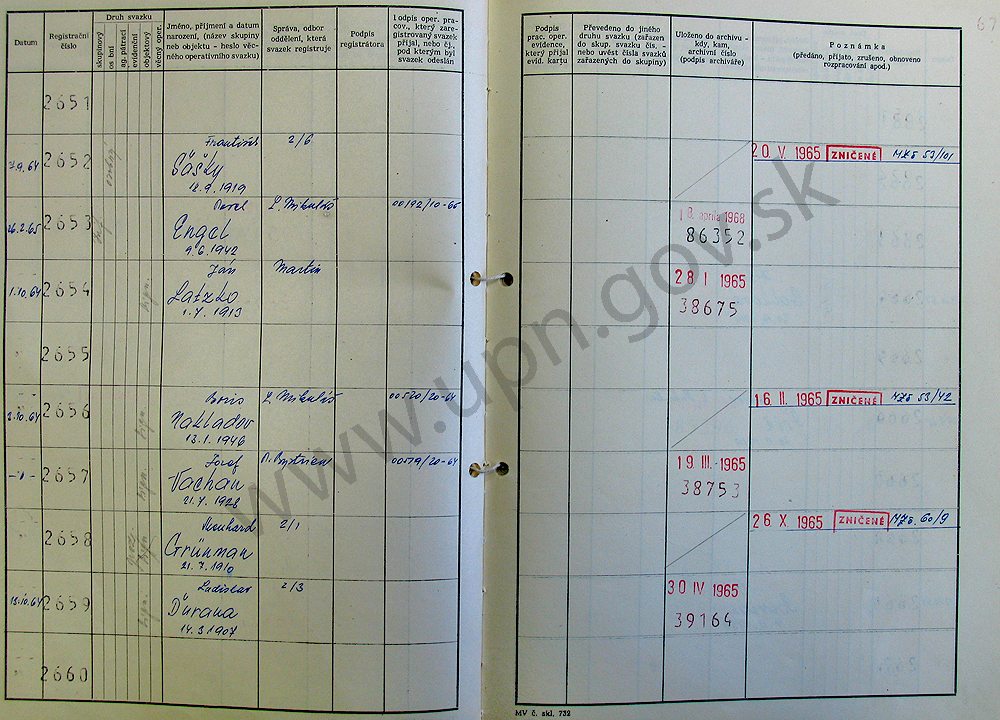 Datum
Registrační
číslo
Druh svazku
skupinový
osobní
ag. pátrací
evidenční
objektový
věcný oper.
Jméno, příjmení a datum
narození, (název skupiny
neb objektu - heslo věc-
ného operativního svazku)
Správa, odbor
oddělení, která
svazek registruje
Podpis
registrátora
Podpis oper. pra-
cov., který zare-
gistrovaný svazek
přijal, nebo čj.,
pod kterým byl
svazek odeslán
Podpis
prac. oper.
evidence,
který přijal
evid. kartu
Převedeno do jiného
druhu svazku (zařazen
do skup. svazku čís. -
nebo uvést čísla svazků
zařazených do skupiny)
Uloženo do archivu -
kdy, kam,
archivní číslo
(podpis archiváře)
Poznámka
(předáno, přijato, zrušeno, obnoveno
rozpracování apod.)
2651
7.9.64 2652 František 2/6
Šášky
18.9.1919
20. V. 1965 ZNIČENÉ MZš 53/101
26.2.65 2653 Pavel L. Mikuláš 00192/10-65
Engel
9.6.1942
18. apríla 1968
86352
1.10.64 2654 Ján Martin
Latzko
1.7.1913
28 I 1965
38675
2655
2.10.64 2656 Boris L. Mikuláš 00520/20-64
Nakladov
13.1.1946
16. II. 1965 ZNIČENÉ MZš 53/42
-"- 2657 Jozef 00579/20-64
Vachan
21.7.1928
19. III. 1965
38753
2658 2/1
Grünman
21.7.1910
26 X 1965 ZNIČENÉ MZš 60/9
13.10.64 2659 Ladislav 2/3
Ďurana
14.3.1907
30 IV 1965
39164
2660
MV č. skl. 732
www.upn.gov.sk